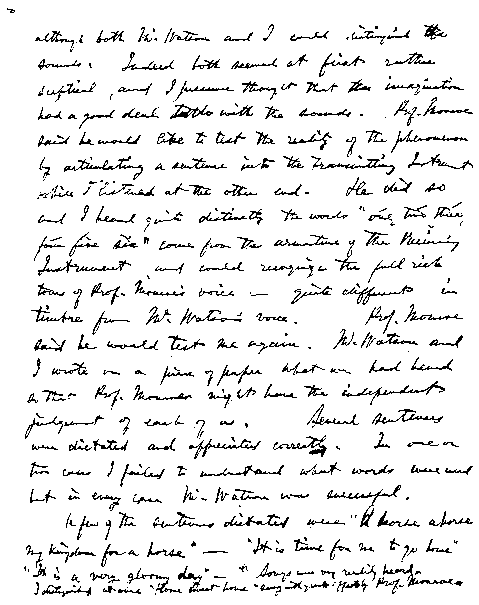 although both Mr. Watson and I could distinguish the
sounds. Indeed both seemed at first rather
sceptical, and I presume thought that the imagination
had a good deal to do with the sounds. Prof. Monroe
said he would like to test the reality of the phenomenon
by articulating a sentence into the Transmitting Instrument
while I listened at the other end. He did so
and I heard quite distinctly the words "one, two, three,
four five six" come from the armature of the Receiving
Instrument and could recognize the full rich
tones of Prof. Monroe's voice — quite different in
timbre from Mr. Watson's voice. Prof. Monroe
said he would test me again. Mr. Watson and
I wrote on a piece of paper what we had heard
so that Prof. Monroe might have the independent
judgment of each of us. Several sentences
were dictated and appreciated correctly. In one or
two cases I failed to understand what words were used
but in every case Mr. Watson was successful.
A few of the sentences dictated were "A horse a horse
my kingdom for a horse" — "It is time for me to go home"
"It is a very gloomy day" — Songs were very readily heard.
I distinguished at once "Home Sweet Home" sung by Prof. Monroe